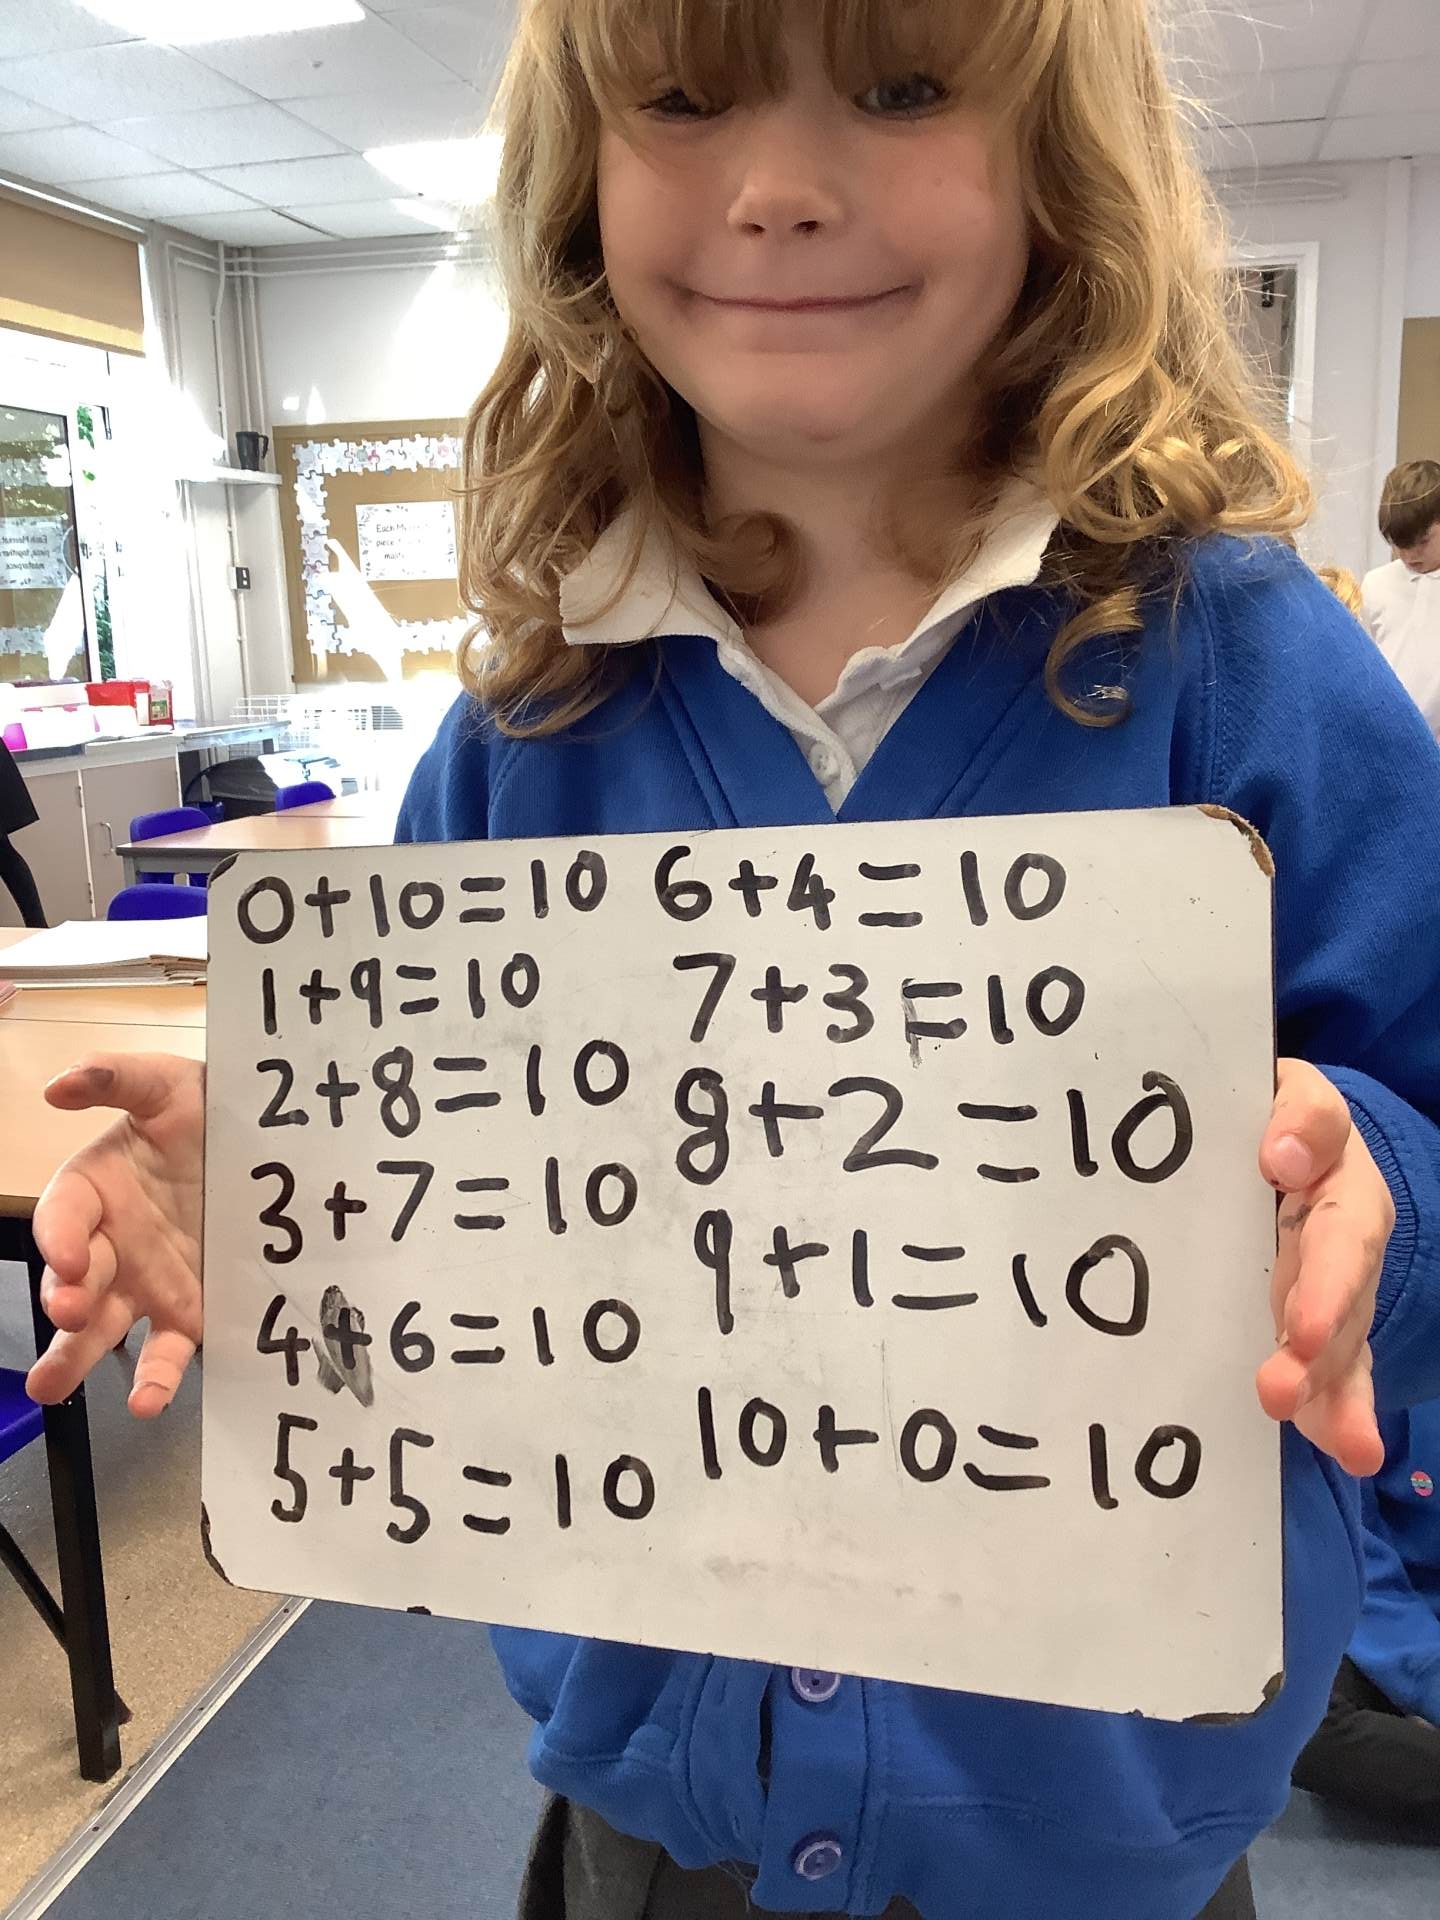 0+10=10
1+9=10
2+8=10
3+7=10
4+6=10
5+5=10
6+4=10
7+3=10
8+2=10
9+1=10
10+0=10
Each
piece